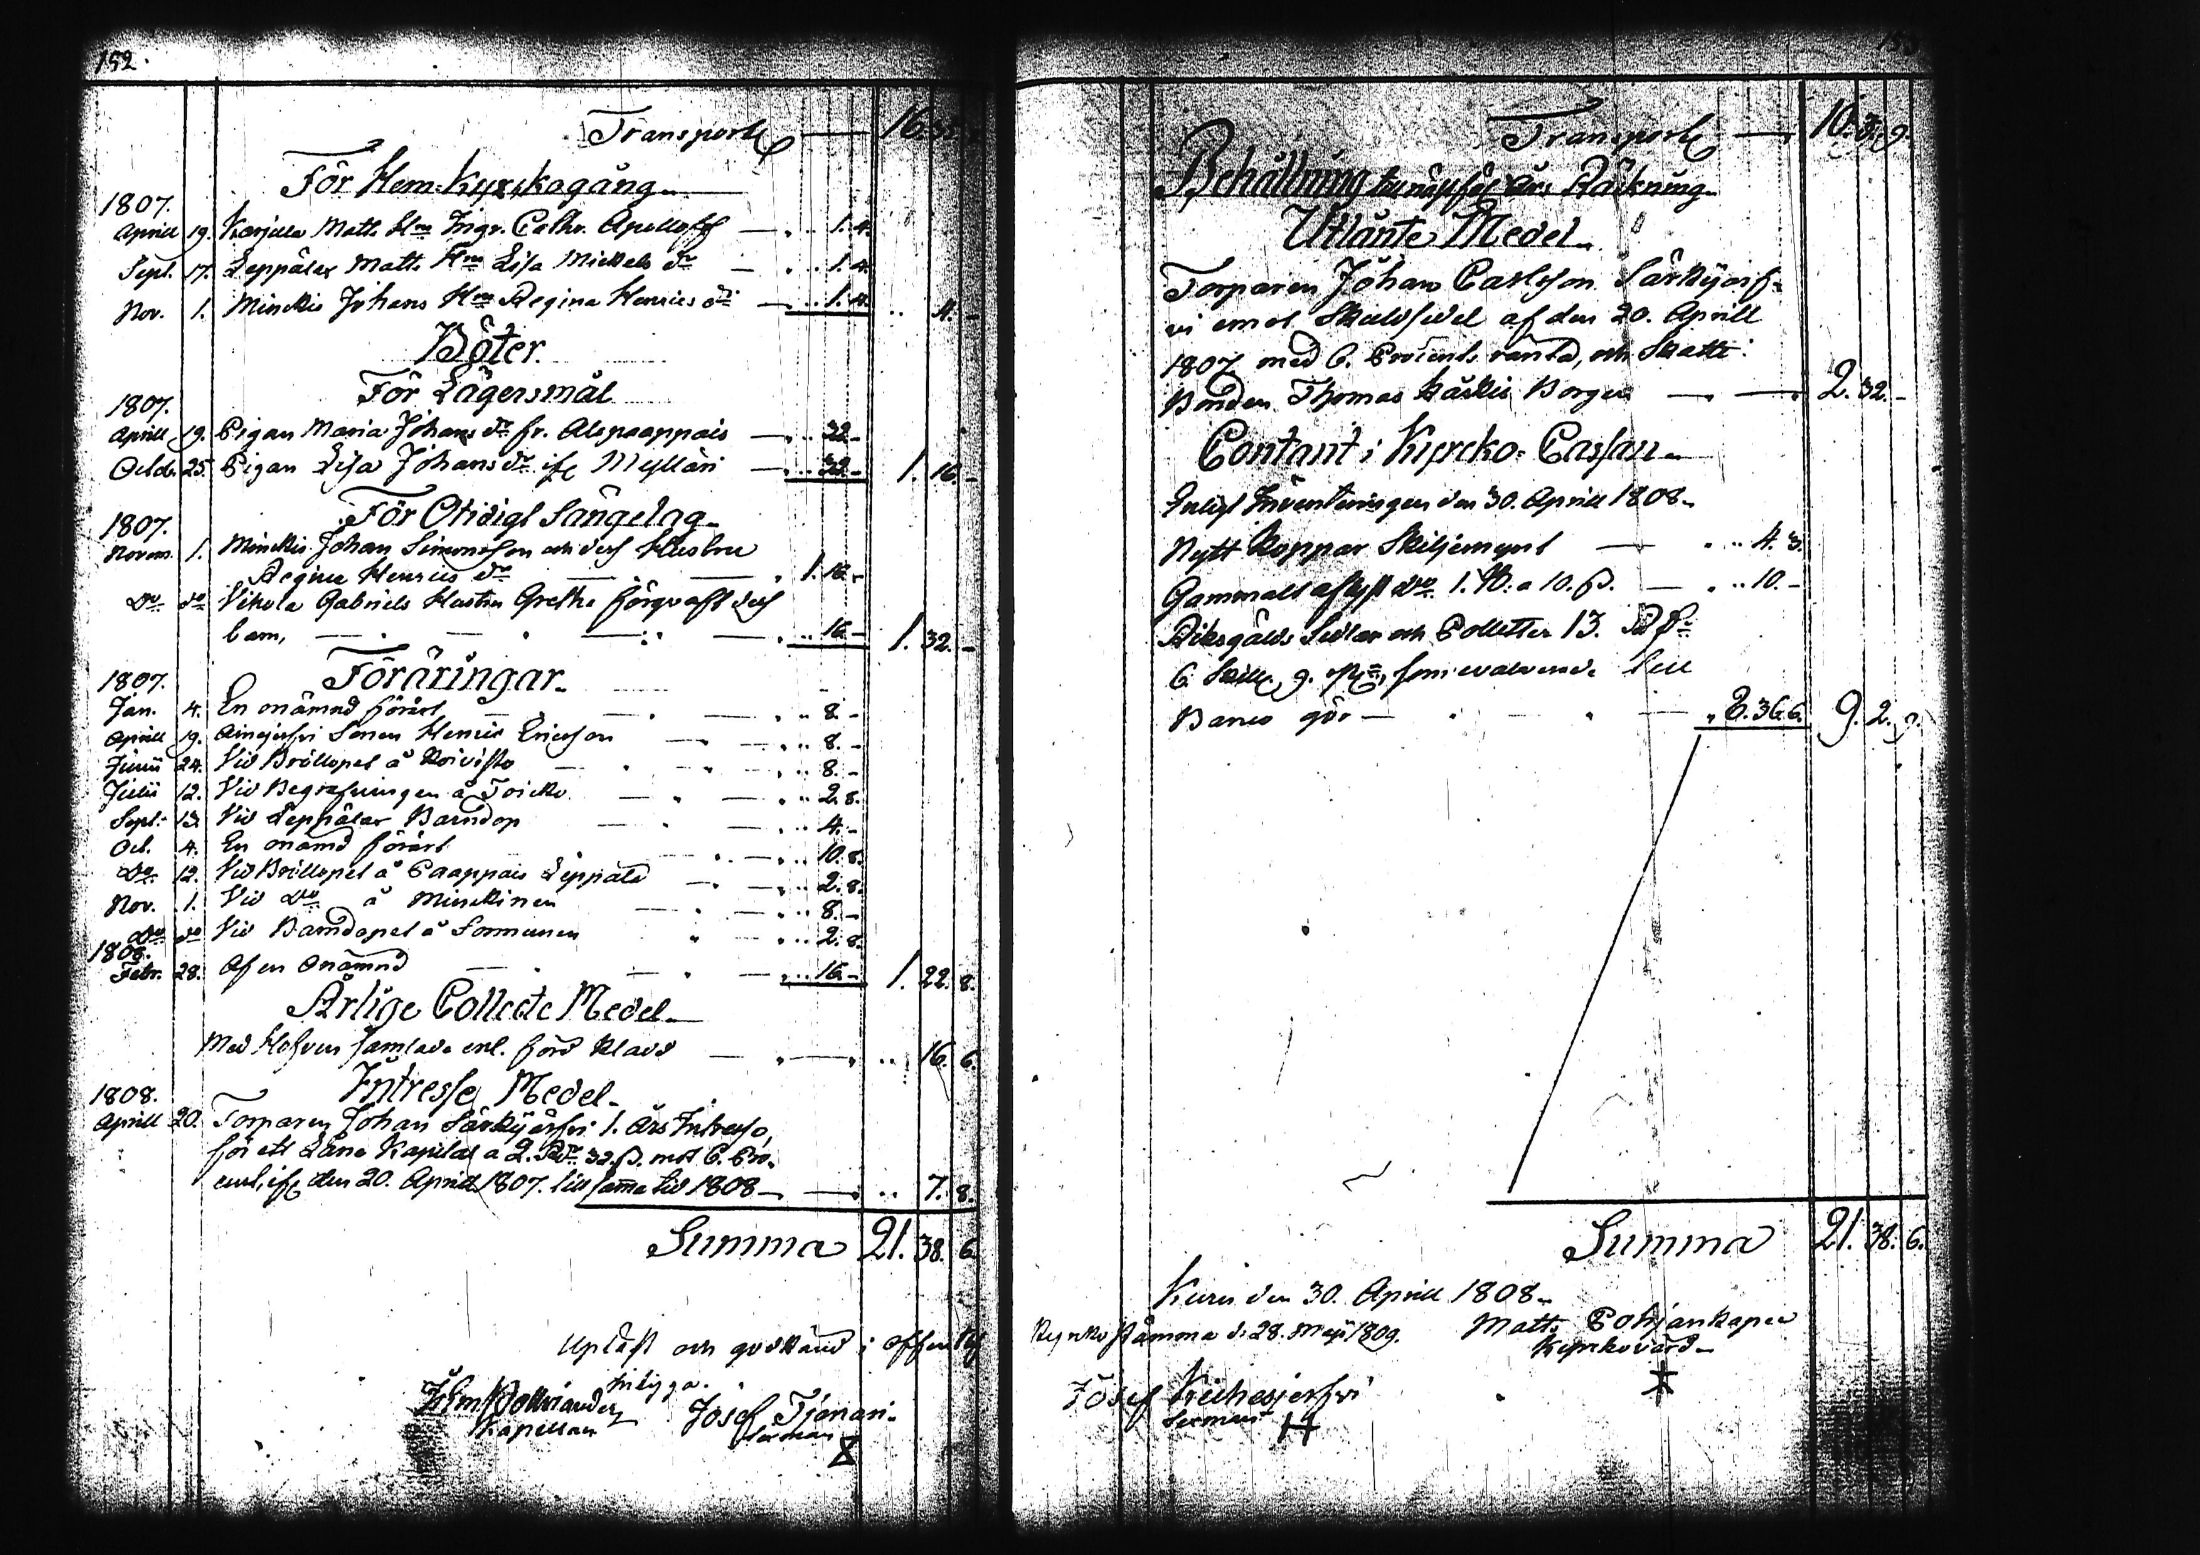 152.
Transport 16.
För Hem-Kyrkkogång
1807.
Aprill 19. Karjula Matts Hu Ingr. Cathr. Apollof 1. 4.
Sept. 17. Leppälax Matts Hu Lisa Mickels dr 1. 4.
Nov. 1. Minckis Johans Hu Regina Henrics dr 1. 4. 4. -
Böter.
För Lägersmål
1807.
Aprill 19. Pigan Maria Johans dr fr. Alapaappais 32 -
Octob. 25. Pigan Lisa Johans dr ifr Mylläri 32. - 1. 16. -
För Otidigt Sängelag
1807.
Novem. 1. Minckis Johan Simonsson och dess Hustru
Regina Henrics dr 1. 16 -
do do Vikola Gabriels Hustru Gretha förqvaft dess
barn, 16 - 1. 32. -
Föräringar
1807.
Jan. 4. En onämnd förärt 8. -
Aprill 19. Ainejerfvi Sonen Henric Ericsson 8. -
Junii 24. Vid Bröllopet å Koivisto 8. -
Julii 12. Vid Begrafningen å Toicko 2. 8.
Sept. 13. Vid Leppälax Barndop 4. -
Oct. 4. En onämd förärt 10. 8.
do 12. Vid Bröllopet å Paappais Leppälä 2. 8.
Nov. 1. Vid do å Minckinen 8. -
do do Vid Barndopet å Sormunen 2. 8.
1808.
Febr. 28. Af en Onämnd 16 - 1. 22. 8.
Årlige Collecte Medel
Med Hofven samlade enl. förd Kladd 16. 6.
Intresse Medel
1808.
Aprill 20. Torparen Johan Särkijärfvi 1. Års Intresse,
för ett Låne Kapital a 2. Rdr 32. ß. mot 6. Pro-
cent, ifr den 20. Aprill 1807. till samma tid 1808 7. 8.
Summa 21. 38. 6.
Upläst och godkänd i offentlig
intyga.
Kapellan
Josef Tjenari
Sexman
Transport 10. 3. 9.
Behållning till näстföl. Års Räkning
Utlånte Medel
Torparen Johan Carlsson Särkijärf-
vi emot Skuldsedel af den 20. Aprill
1807 med 6. Procents ränta, och Skatte-
Bonden Thomas Käskis Borgen 2. 32. -
Contant i Kyrcko-Cassan
Enligt Inventeringen den 30. Aprill 1808
Nytt Koppar Skiljemynt 4. 3.
Gammalt aflyst do 1. ℔. a 10. ß. 10. -
Riksgälds Sedlar och Polletter 13. Rdr
6 Skill. 9. rst, som evalverade till
Banco gör 8. 36. 6. 9. 2. 9.
Summa 21. 38. 6.
Kuru den 30. Aprill 1808
Kyrko stämma d. 28. Maji 1809.
Matts Pohjankapee
Kyrkovärd
Josef Keihesjerfvi
Sexman